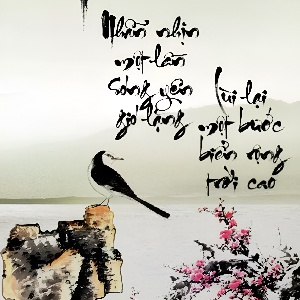 Nhẫn nhịn
một lần
Sóng yên
gió lặng
Lùi lại
một bước
biển rộng
trời cao